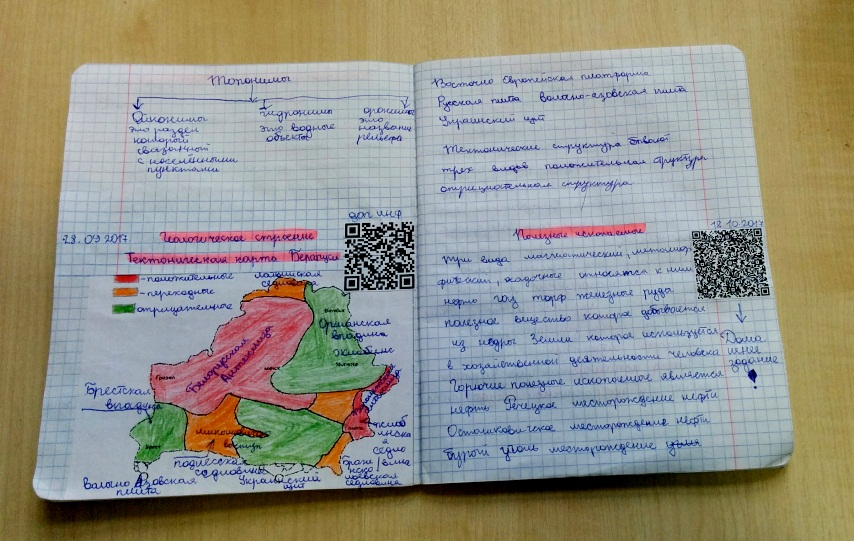 Топонимы
Ойконимы
это раздел
который
связанный
с населёнными
пунктами
гидронимы
это водные
объекты
оронимы
это
название
рельефа
доп инф
28.09.2017
Геологическое строение
Тектоническая карта Беларуси
-положительные
-переходные
-отрицательные
Латвийская
седловина
Оршанская
впадина
Витебск
Белорусская
Антеклиза
Гродно
Минск
Могилёв
Брестская
впадина
Брест
Гомель
микашевичс
выступ
полесская
седловина
Волыно Азовская
плита
Украинский
щит
Жлоб
инска
я
седло
вина
Браги
нско
лоевская
седловина
Восточно Европейская платформа
Русская плита Волыно-азовская плита
Украинский щит
Тектонические структура бывают
трех видов положительная структура
отрицательная структура
12.10.2017
Полезные ископаемые
Три вида магматический, метаморфи
фический, осадочные относятся к ним
нефть газ торф железные руды
полезное вещество которое добывается
из недры Земли которое используется
в хозяйственной деятельности человека
Горючие полезное ископаемое является
нефть Речецкое месторождение нефти
Осташковичское месторождение нефти
Бурого уголь месторождение угля
Дома
шнее
задание